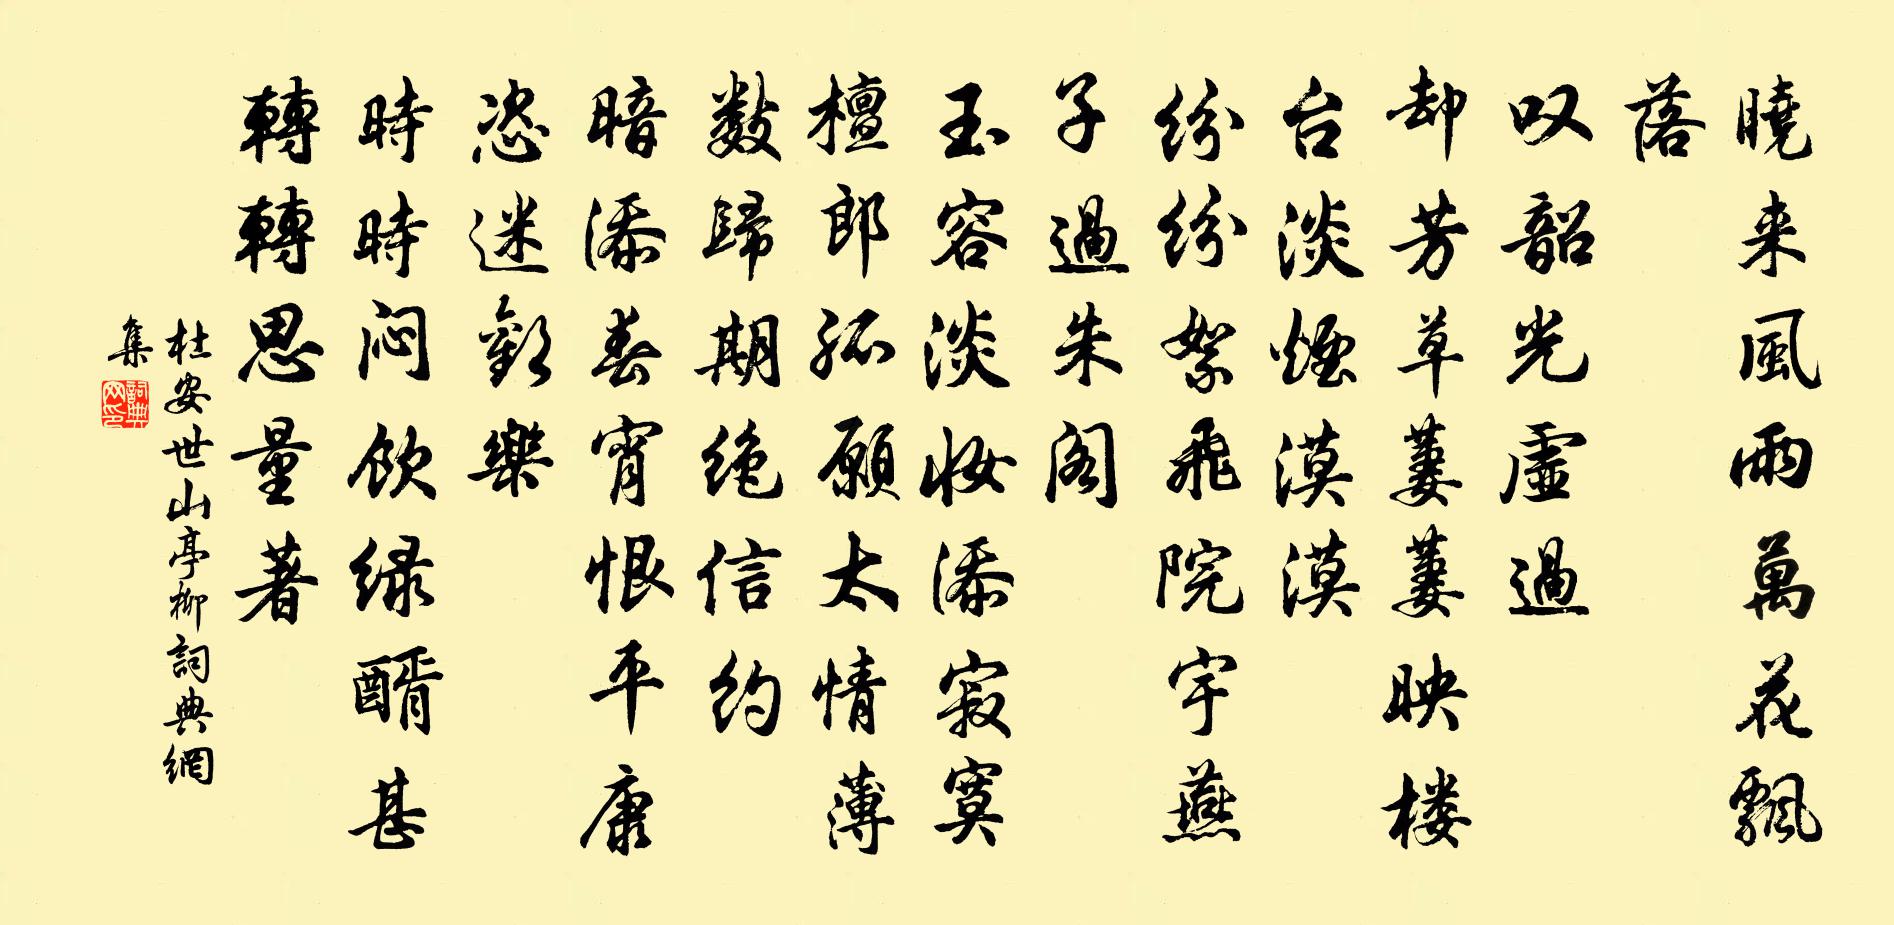 曉来風雨萬花飄
落
叹韶光虛過
却芳草萋萋映楼
台淡煙漠漠
纷纷絮飛院宇燕
子過朱阁
玉容淡妆添寂寞
檀郎孤願太情薄
數歸期绝信约
暗添春宵恨平康
恣迷歡樂
時時闷飲绿醑甚
轉轉思量著
杜安世山亭柳詞典網
集
詞典網印